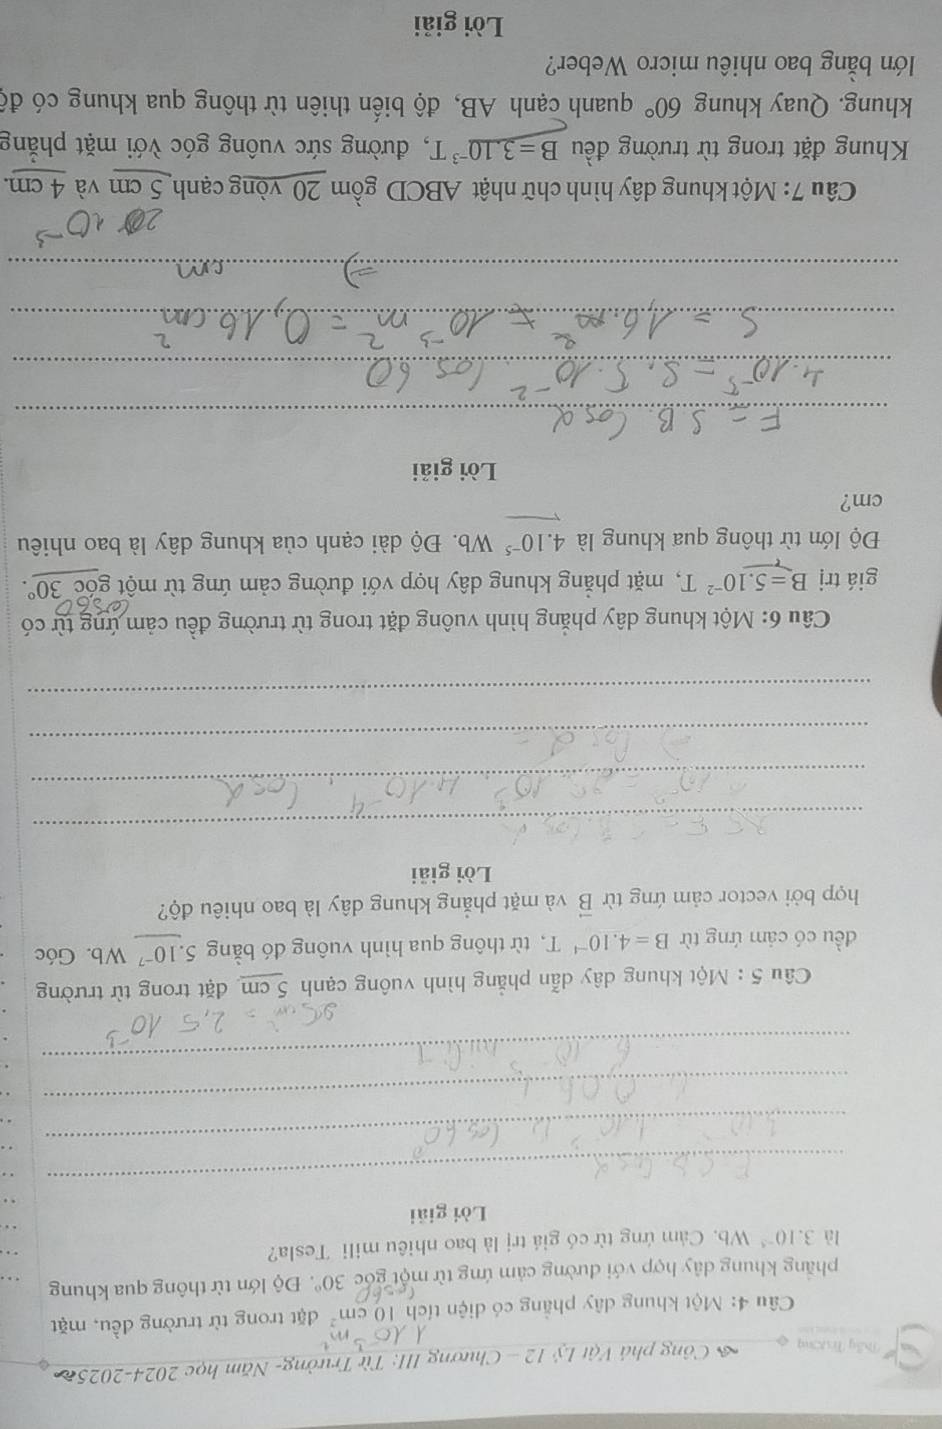 Thầy Trường
Công phá Vật Lý 12 – Chương III: Từ Trường- Năm học 2024-2025
1.10⁻³ m²
Câu 4: Một khung dây phẳng có diện tích 10 cm² đặt trong từ trường đều, mặt
cos60
phẳng khung dây hợp với đường cảm ứng từ một góc 30°. Độ lớn từ thông qua khung
là 3.10⁻⁵ Wb. Cảm ứng từ có giá trị là bao nhiêu mili Tesla?
Lời giải
cos 60°
25 cm² = 2,5 10⁻³
Câu 5 : Một khung dây dẫn phẳng hình vuông cạnh 5 cm, đặt trong từ trường
đều có cảm ứng từ B = 4.10⁻⁴ T, từ thông qua hình vuông đó bằng 5.10⁻⁷ Wb. Góc
hợp bởi vector cảm ứng từ B⃗ và mặt phẳng khung dây là bao nhiêu độ?
Lời giải
4.10⁻⁴. Cos α
=> Cos α =
Câu 6: Một khung dây phẳng hình vuông đặt trong từ trường đều cảm ứng từ có
cos60
giá trị B = 5.10⁻² T, mặt phẳng khung dây hợp với đường cảm ứng từ một góc 30°.
Độ lớn từ thông qua khung là 4.10⁻⁵ Wb. Độ dài cạnh của khung dây là bao nhiêu
cm?
Lời giải
F = S B. Cos α
4.10⁻⁵ = S. 5.10⁻². Cos 60
S = 1,6. m² 10⁻³ m² = 0,16 cm²
=> cm
20 10⁻³
Câu 7: Một khung dây hình chữ nhật ABCD gồm 20 vòng cạnh 5 cm và 4 cm.
Khung đặt trong từ trường đều B = 3.10⁻³ T, đường sức vuông góc với mặt phẳng
khung. Quay khung 60° quanh cạnh AB, độ biến thiên từ thông qua khung có độ
lớn bằng bao nhiêu micro Weber?
Lời giải